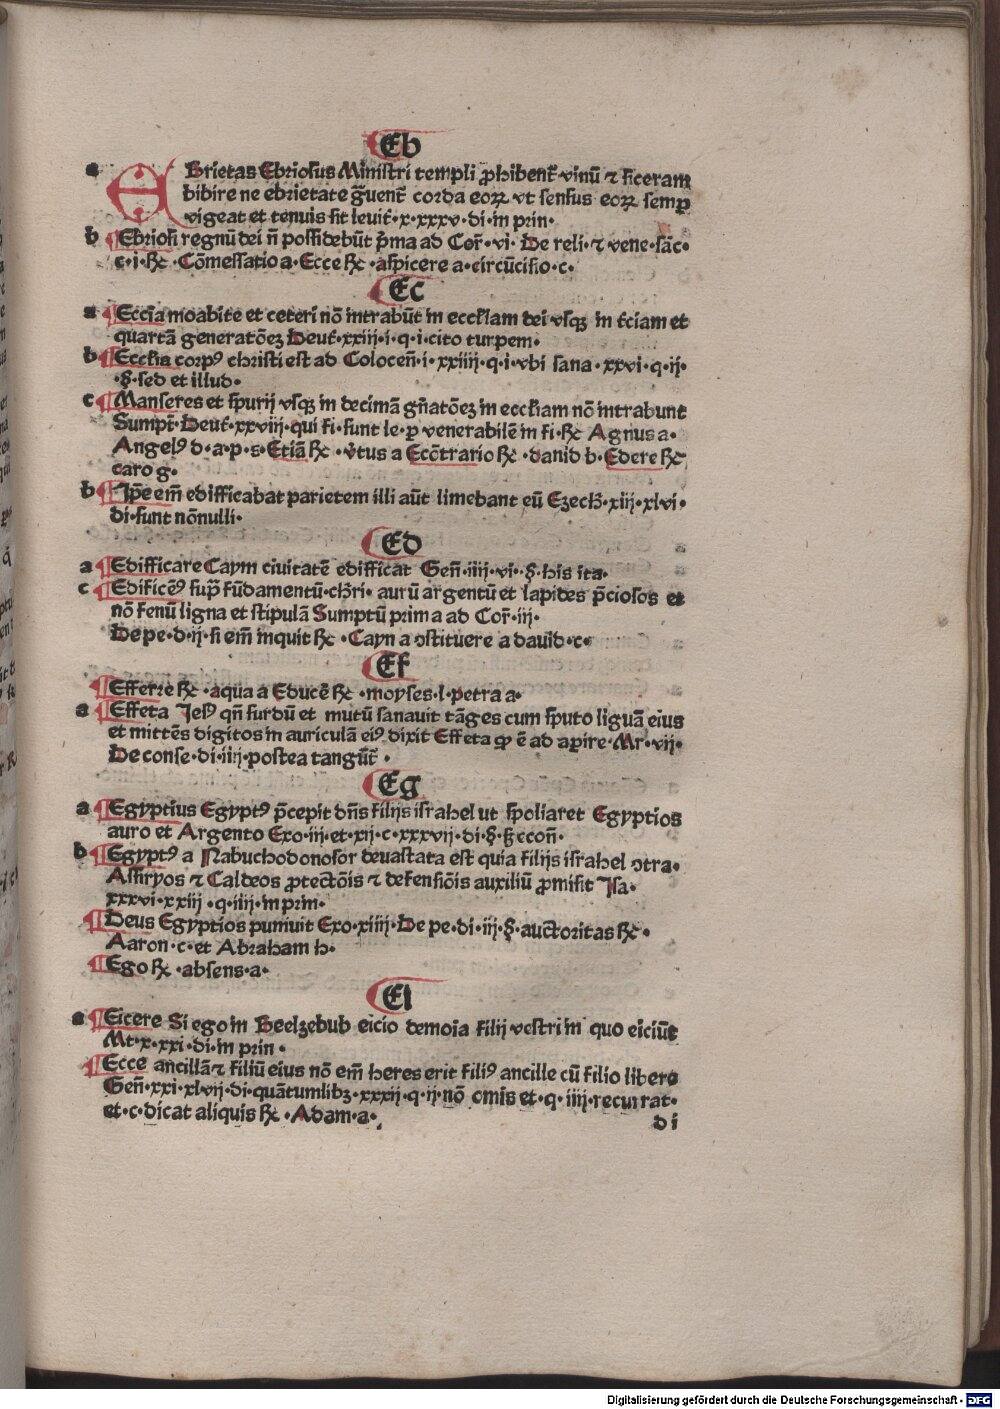 Eb
a EBrietas Ebriosus Ministri templi ꝓhibent᷑ vinū ⁊ siceram
bibire ne ebrietate g̃uent᷑ corda eoꝝ vt sensus eoꝝ semꝑ
vigeat et tenuis sit leuit᷑·x·xxxv·di·in prin·
b ¶ Ebriosi regnū dei n̄ possidebūt p̄ma ad Cor̄·vi· De reli·⁊ vene·sāc·
c·i·℞c ·Cōmessatio a·Ecce ℞c ·aspicere a·circūcisio·c·
Ec
a ¶ Eccīa moabite et ceteri nō intrabūt in eccl̄iam dei vsqꝫ in t̄ciam et
quartā generatōeꝫ Deut᷑·xxiii·i·q·i·cito turpem·
b ¶ Ecclīa corpꝰ christi est ad Coloceñ·i·xxiiii·q·i·vbi sana·xxvi·q·ii·
·§·sed et illud·
c ¶ Manseres et spurij vsqꝫ in decimā gñatōeꝫ in eccl̄iam nō intrabunt
Sumpt᷑·Deut᷑·xxviij·qui fi·sunt le·ꝑ venerabilē in fi·℞c Agnus a·
Angelꝰ d·a·p·s·Etiā ℞c ·v̄tus a Ecōtrario ℞c ·dauid b·Edere ℞c
caro g·
b ¶ Ip̄e em̄ edifficabat parietem illi aūt limebant eū Ezech̄·xiij·xlvi·
di·sunt nōnulli·
Ed
a ¶ Edifficare Caym ciuitatē edifficat Geñ·iiij·vi··§·his ita·
c ¶ Edificēꝰ supr̄ fūdamentū·ch̄ri· aurū argentū et lapides p̄ciosos et
nō fenū ligna et stipulā Sumptū prima ad Cor̄·iij·
De pe·d·ij·si em̄ inquit ℞c ·Cayn a ꝯstituere a dauid·c·
Ef
¶ Efferre ℞c ·aqua a Educē ℞c ·moyses·l·petra a·
a ¶ Effeta Jesꝰ qn̄ surdū et mutū sanauit tāges cum sputo liguā eius
et mittēs digitos in auriculā eiꝰ dixit Effeta qꝫ ē ad aꝑire·Mr·vij·
De conse·di·iiij·postea tangūt᷑ ·
Eg
a ¶ Egyptius Egyptꝰ p̄cepit dn̄s filijs israhel ut spoliaret Egyptios
auro et Argento Exo·iij·et·xij·c·xxxvij·di·§·ꝫ eccoñ·
b ¶ Egyptꝰ a Nabuchodonosor deuastata est quia filijs israhel ꝯtra·
Assiryos ⁊ Caldeos ꝓtectōis ⁊ defensiōis auxiliū ꝓmisit Jsa·
xxxvi·xxiij ·q·iiij·in prin·
¶ Deus Egyptios puniuit Exo·xiiij·De pe·di·iij·§·auctoritas ℞c·
Aaron·c·et Abraham h·
¶ Ego ℞c ·absens·a·
Ei
a ¶ Eicere Si ego in Beelzebub eicio demoia filij vestri in quo eiciūt
Mt·x·xxi·di·in prin·
¶ Ecce ancillā ⁊ filiū eius nō em̄ heres erit filiꝰ ancille cū filio libere
Geñ·xxi·xlvij·di·quātumlibꝫ·xxxij·q·ij·nō omis et·q·iiij·recurrat·
et·c·dicat aliquis ℞c ·Adam·a·
d i
Digitalisierung gefördert durch die Deutsche Forschungsgemeinschaft - DFG